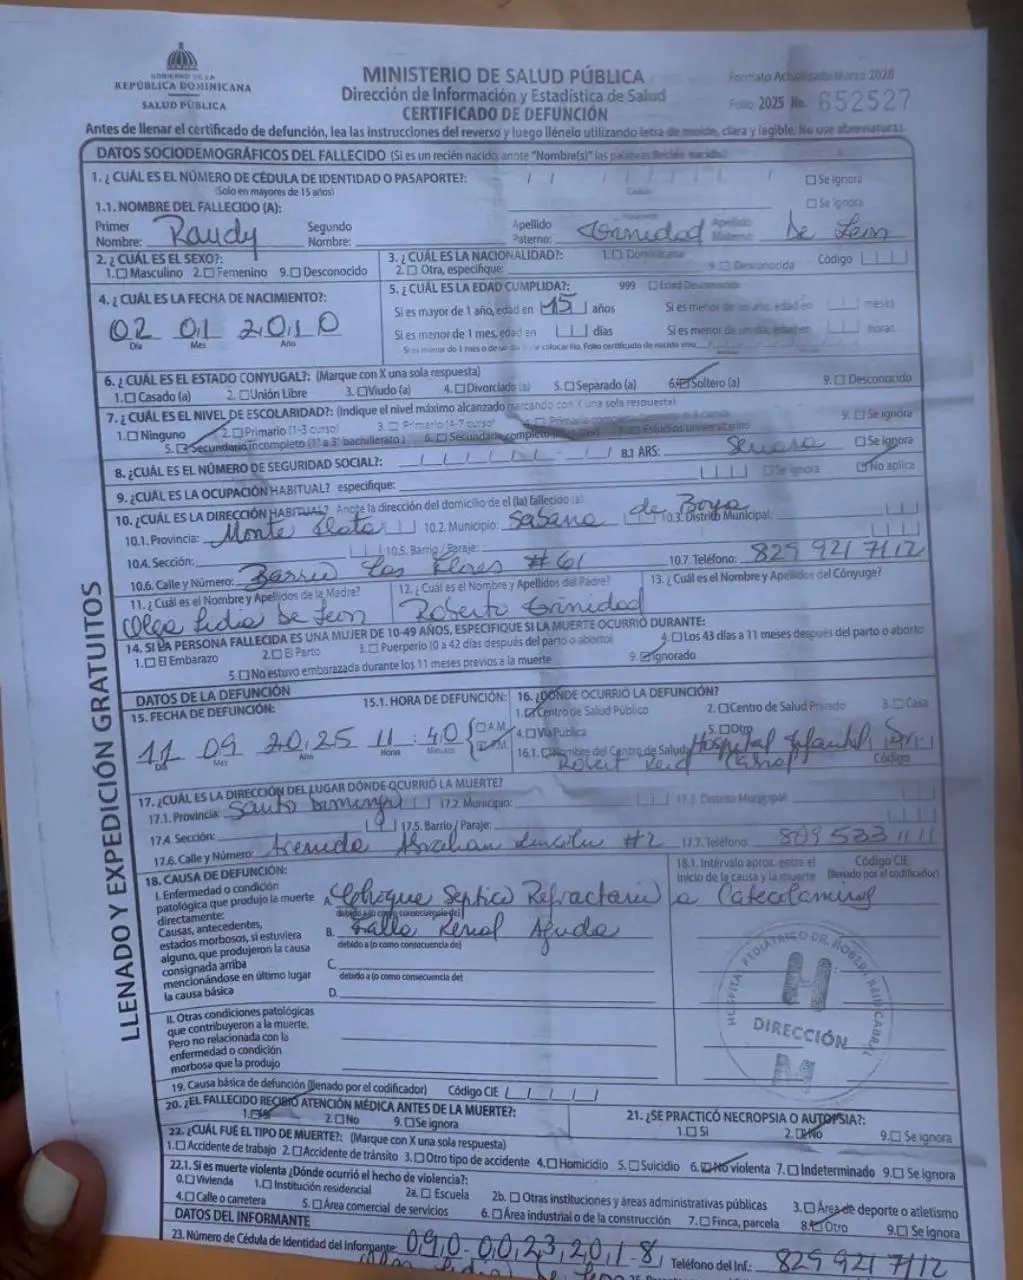 GOBIERNO DE LA
REPÚBLICA DOMINICANA
SALUD PÚBLICA
MINISTERIO DE SALUD PÚBLICA
Dirección de Información y Estadística de Salud
CERTIFICADO DE DEFUNCIÓN
Formato Actualizado Marzo 2020
Folio 2025 No. 652527
Antes de llenar el certificado de defunción, lea las instrucciones del reverso y luego llénelo utilizando letra de molde, clara y legible. No use abreviaturas.
LLENADO Y EXPEDICIÓN GRATUITOS
DATOS SOCIODEMOGRÁFICOS DEL FALLECIDO (Si es un recién nacido, anote "Nombre(s)" las palabras Recién nacido)
1. ¿CUÁL ES EL NÚMERO DE CÉDULA DE IDENTIDAD O PASAPORTE?: Se ignora
(Solo en mayores de 15 años)
1.1. NOMBRE DEL FALLECIDO (A): Se ignora
Primer Nombre: Randy Segundo Nombre: Apellido Paterno: Trinidad Apellido Materno: De Leon
2. ¿CUÁL ES EL SEXO?: 3. ¿CUÁL ES LA NACIONALIDAD?: 1. Dominicana Código
1. Masculino 2. Femenino 9. Desconocido 2. Otra, especifique: 9. Desconocida
4. ¿CUÁL ES LA FECHA DE NACIMIENTO?: 5. ¿CUÁL ES LA EDAD CUMPLIDA?: 999 Edad Desconocida
02 01 2010 Si es mayor de 1 año, edad en 15 años Si es menor de un año, edad en meses
Día Mes Año Si es menor de 1 mes, edad en días Si es menor de un día, edad en horas
6. ¿CUÁL ES EL ESTADO CONYUGAL?: (Marque con X una sola respuesta)
1. Casado (a) 2. Unión Libre 3. Viudo (a) 4. Divorciado (a) 5. Separado (a) 6. Soltero (a) 9. Desconocido
7. ¿CUÁL ES EL NIVEL DE ESCOLARIDAD?: (Indique el nivel máximo alcanzado marcando con X una sola respuesta)
1. Ninguno 2. Primario (1-3 curso) 3. Primario (4-7 curso) 9. Se ignora
5. Secundario incompleto (1° a 3° bachillerato) 6. Secundario completo Estudios universitarios
8. ¿CUÁL ES EL NÚMERO DE SEGURIDAD SOCIAL?: 8.1 ARS: Senasa Se ignora
9. ¿CUÁL ES LA OCUPACIÓN HABITUAL? especifique: Se ignora No aplica
10. ¿CUÁL ES LA DIRECCIÓN HABITUAL? Anote la dirección del domicilio de el (la) fallecido (a)
10.1. Provincia: Monte Plata 10.2. Municipio: Sabana de Boya 10.3. Distrito Municipal:
10.4. Sección: 10.5. Barrio / Paraje:
10.6. Calle y Número: Barrio Las Flores #61 10.7. Teléfono: 829 921 7112
11. ¿Cuál es el Nombre y Apellidos de la Madre? 12. ¿Cuál es el Nombre y Apellidos del Padre? 13. ¿Cuál es el Nombre y Apellidos del Cónyuge?
Olga Lidia De Leon Roberto Trinidad
14. SI LA PERSONA FALLECIDA ES UNA MUJER DE 10-49 AÑOS, ESPECIFIQUE SI LA MUERTE OCURRIÓ DURANTE:
1. El Embarazo 2. El Parto 3. Puerperio (0 a 42 días después del parto o aborto) 4. Los 43 días a 11 meses después del parto o aborto
5. No estuvo embarazada durante los 11 meses previos a la muerte 9. Ignorado
DATOS DE LA DEFUNCIÓN
15. FECHA DE DEFUNCIÓN: 15.1. HORA DE DEFUNCIÓN: 16. ¿DÓNDE OCURRIÓ LA DEFUNCIÓN?
1. Centro de Salud Público 2. Centro de Salud Privado 3. Casa
11 09 2025 11:40 A.M. P.M. 4. Vía Pública 5. Otro
Día Mes Año Horas Minutos 16.1. Nombre del Centro de Salud: Hospital Infantil Dr. Robert Reid Cabral Código
17. ¿CUÁL ES LA DIRECCIÓN DEL LUGAR DÓNDE OCURRIÓ LA MUERTE?
17.1. Provincia: Santo Domingo 17.2. Municipio: 17.3. Distrito Municipal:
17.4. Sección: 17.5. Barrio / Paraje:
17.6. Calle y Número: Avenida Abrahan Lincoln #2 17.7. Teléfono 809 533 1111
18. CAUSA DE DEFUNCIÓN: 18.1. Intérvalo aprox. entre el inicio de la causa y la muerte Código CIE (llenado por el codificador)
I. Enfermedad o condición patológica que produjo la muerte directamente: A. Choque Septico Refractario a Catecolaminas
debido a (o como consecuencia de)
Causas, antecedentes, estados morbosos, si estuviera alguno, que produjeron la causa consignada arriba mencionándose en último lugar la causa básica
B. Falla Renal Aguda
debido a (o como consecuencia de)
C.
debido a (o como consecuencia de)
D.
HOSPITAL PEDIÁTRICO DR. ROBERT REID CABRAL
H
DIRECCIÓN
II. Otras condiciones patológicas que contribuyeron a la muerte. Pero no relacionada con la enfermedad o condición morbosa que la produjo
19. Causa básica de defunción (llenado por el codificador) Código CIE
20. ¿EL FALLECIDO RECIBIÓ ATENCIÓN MÉDICA ANTES DE LA MUERTE?: 21. ¿SE PRACTICÓ NECROPSIA O AUTOPSIA?:
1. Sí 2. No 9. Se ignora 1. Si 2. No 9. Se ignora
22. ¿CUÁL FUÉ EL TIPO DE MUERTE?: (Marque con X una sola respuesta)
1. Accidente de trabajo 2. Accidente de tránsito 3. Otro tipo de accidente 4. Homicidio 5. Suicidio 6. No violenta 7. Indeterminado 9. Se ignora
22.1. Si es muerte violenta ¿Dónde ocurrió el hecho de violencia?:
0. Vivienda 1. Institución residencial 2a. Escuela 2b. Otras instituciones y áreas administrativas públicas 3. Área de deporte o atletismo
4. Calle o carretera 5. Área comercial de servicios 6. Área industrial o de la construcción 7. Finca, parcela 8. Otro 9. Se ignora
DATOS DEL INFORMANTE
23. Número de Cédula de Identidad del Informante: 090-0023201-8 Teléfono del Inf.: 829 921 7112